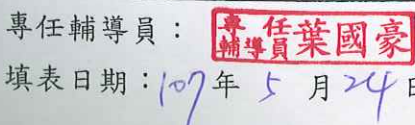 專任輔導員：專任輔導員葉國豪
填表日期：107年5月24日